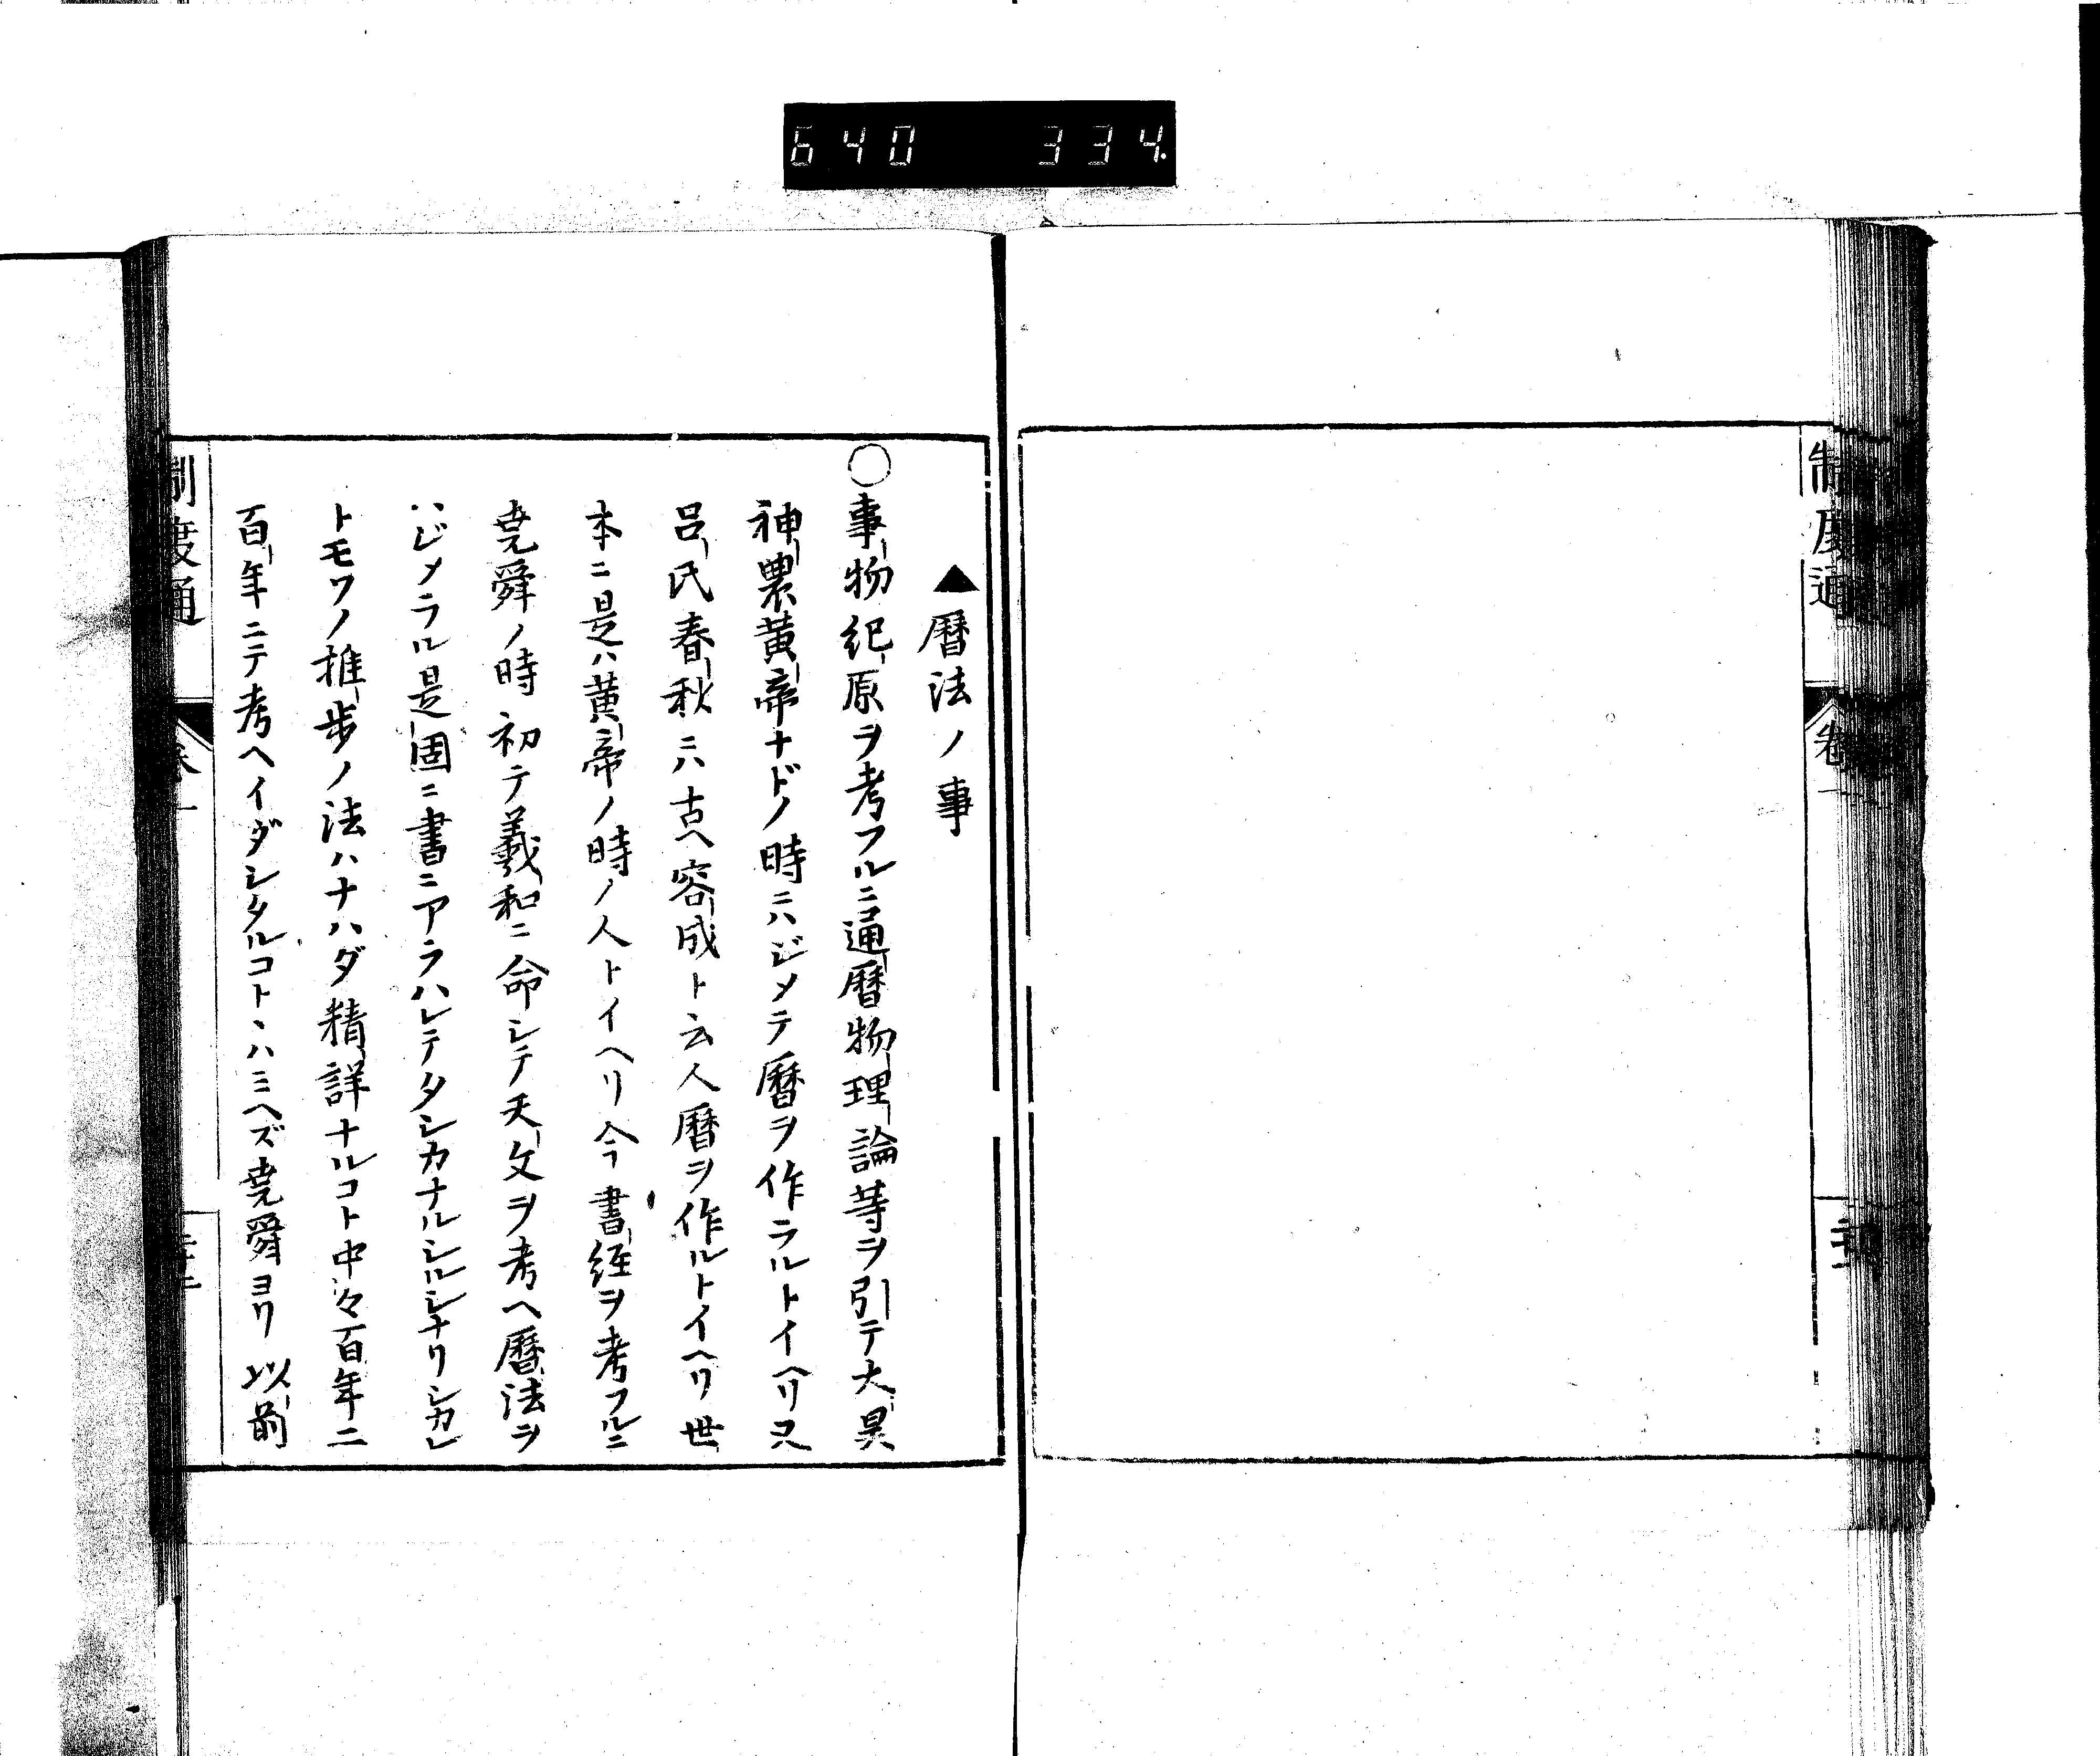 640 334.
制度通
卷
▲曆法ノ事
○事物紀原ヲ考フルニ通曆物理論等ヲ引テ大昊
神農黄帝ナドノ時ニハジメテ曆ヲ作ラルトイヘリ又
呂氏春秋ニハ古ヘ容成ト云人曆ヲ作ルトイヘリ世
本ニ是ハ黄帝ノ時ノ人トイヘリ今書経ヲ考フルニ
堯舜ノ時初テ羲和ニ命シテ天文ヲ考ヘ曆法ヲ
ハジメラル是固ニ書ニアラハレテタシカナルシルシナリシカレ
トモワノ推歩ノ法ハナハダ精詳ナルコト中々百年二
百年ニテ考ヘイダシタルコトヽハミヘズ堯舜ヨリ以前
制度通
卷一